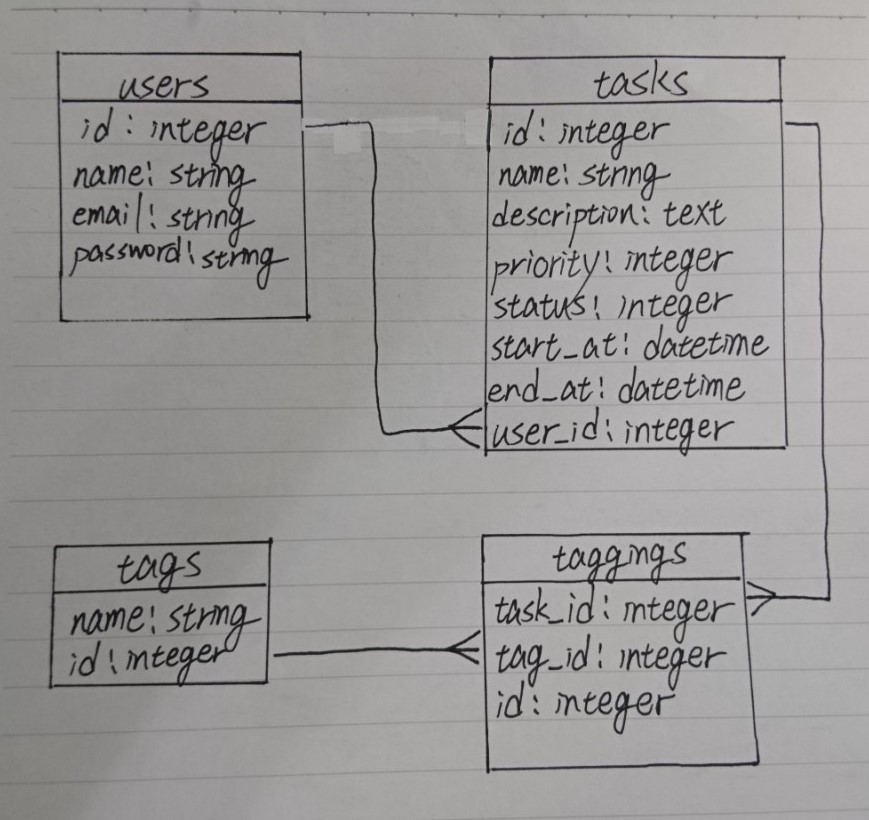 users
id: integer
name: string
email: string
password: string
tasks
id: integer
name: string
description: text
priority: integer
status: integer
start_at: datetime
end_at: datetime
user_id: integer
tags
name: string
id: integer
taggings
task_id: integer
tag_id: integer
id: integer